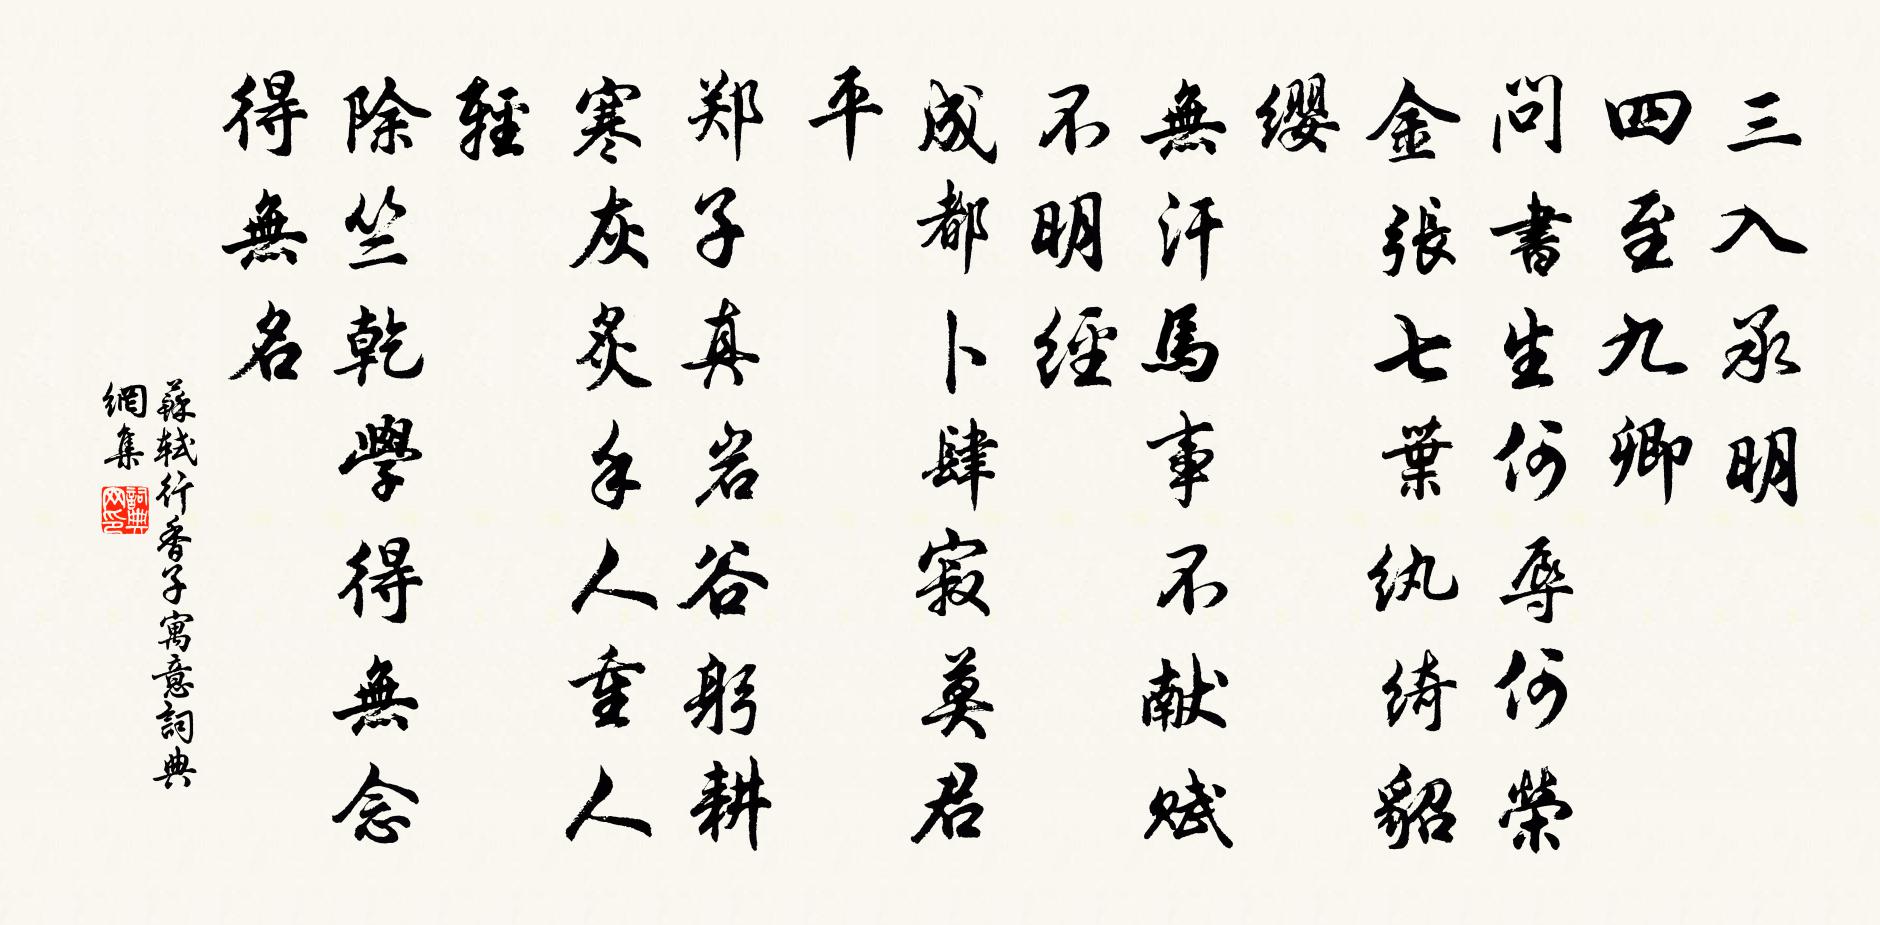 三入承明
四至九卿
問書生何辱何榮
金張七葉纨绮貂
缨
無汗馬事不献赋
不明經
成都卜肆寂莫君
平
郑子真岩谷躬耕
寒灰炙手人重人
輕
除竺乾學得無念
得無名
蘇軾行香子寓意詞典
網集
詞典网印